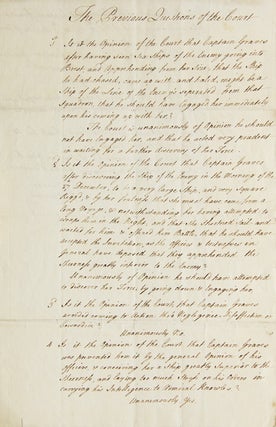 The Previous Questions of the Court
Is it the Opinion of the Court that Captain Graves
after having seen Six Ships of the Enemy going into
Brest and apprehending from her Size, that the Ship
he had chased, came up with and hailed, might be a
Ship of the Line of the Enemy's seperated from that
Squadron, that he should have Engaged her immediately
upon his coming up with her?
The Court is unanimously of Opinion he should
not have Engaged her, and that he acted very prudent
in waiting for a further discovery of her Force.
2 Is it the Opinion of the Court that Captain Graves
after discovering the Ship of the Enemy in the Morning of the
27 December, to be a very large Ship, and very Square
Rigg'd, & by her Foulness that she must have come from a
long Voyage, & notwithstanding her having attempted to
him in the Night, and that She Shortned Sail and
waited for him & offered him Battle, that he should have
accepted the Invitation, as the Officers & Witnesses in
general have deposed that they apprehended the
Sheerness greatly inferior to the Enemy?
Unanimously of Opinion he should have attempted
to discover her Force, by going down & engaging her.
3 Is it the Opinion of the Court, that Captain Graves
avoided coming to Action thro' Negligence, Disaffection or
Cowardice?
Unanimously No.
4 Is it the Opinion of the Court that Captain Graves
was prevented from it by the general Opinion of his
officers in concerning her a Ship greatly Superior to the
Sheerness, and laying too much Stress on his Orders in
carrying his Intelligence to Admiral Knowles?
Unanimously Yes.